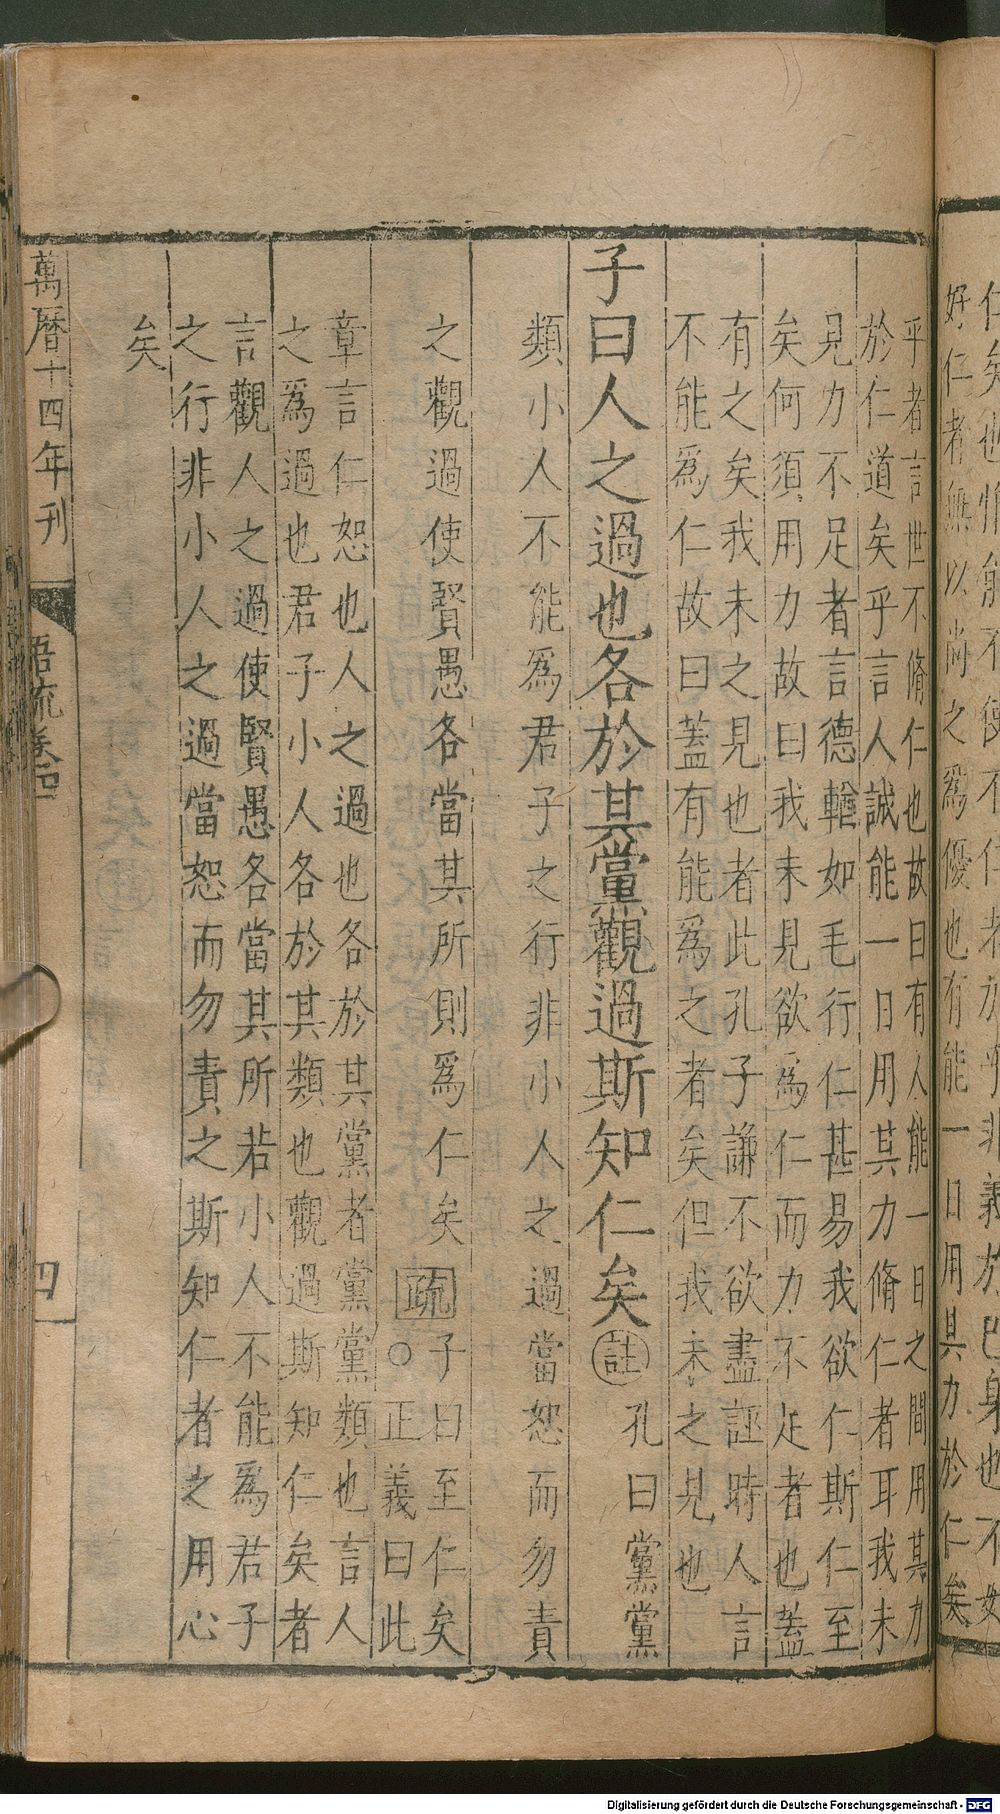 仁矣也惟能不使不仁者加乎非義於己身也不如
好仁者無以尚之爲優也有能一日用其力於仁矣
乎者言世不脩仁也故曰有人能一日之間用其力
於仁道矣乎言人誠能一日用其力脩仁者耳我未
見力不足者言德輶如毛行仁甚易我欲仁斯仁至
矣何須用力故曰我未見欲爲仁而力不足者也蓋
有之矣我未之見也者此孔子謙不欲盡誣時人言
不能爲仁故曰蓋有能爲之者矣但我未之見也
子曰人之過也各於其黨觀過斯知仁矣註孔曰黨黨
類小人不能爲君子之行非小人之過當恕而勿責
之觀過使賢愚各當其所則爲仁矣疏子曰至仁矣
○正義曰此
章言仁恕也人之過也各於其黨者黨黨類也言人
之爲過也君子小人各於其類也觀過斯知仁矣者
言觀人之過使賢愚各當其所若小人不能爲君子
之行非小人之過當恕而勿責之斯知仁者之用心
矣
萬曆十四年刊
語疏卷四
四
Digitalisierung gefördert durch die Deutsche Forschungsgemeinschaft - DFG